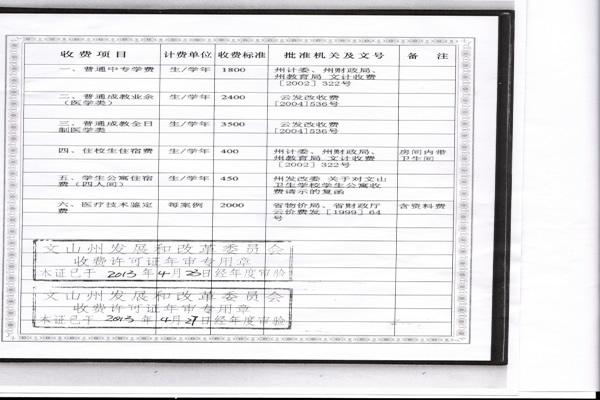 收费项目 计费单位 收费标准 批准机关及文号 备 注
一、普通中专学费 生/学年 1800 州计委、州财政局、
州教育局 文计收费
[2002] 322号
二、普通成教业余 生/学年 2400 云发改收费
(医学类) [2004]536号
三、普通成教全日 生/学年 3500 云发改收费
制医学类 [2004]536号
四、住校生住宿费 生/学年 400 州计委、州财政局、 房间内带
州教育局 文计收费 卫生间
[2002] 322号
五、学生公寓住宿 生/学年 450 州发改委 关于对文山
费(四人间) 卫生学校学生公寓收
费请示的复函
六、医疗技术鉴定 每案例 2000 省物价局、省财政厅 含资料费
费 云价费发 [1999] 64
号
文山州发展和改革委员会
收费许可证年审专用章
本证已于 2013 年 4 月 23 日经年度审验
文山州发展和改革委员会
收费许可证年审专用章
本证已于 2013 年 4 月 27 日经年度审验